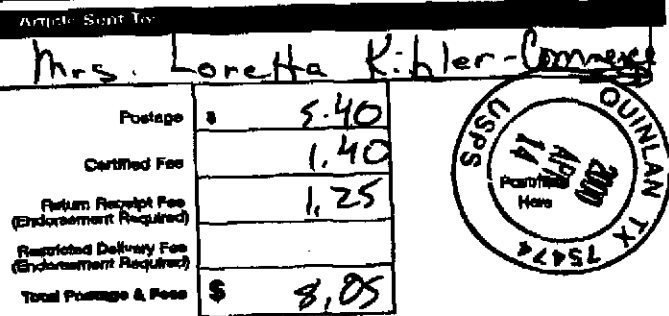 Article Sent To:
Mrs. Loretta Kibler-Commerce
Postage $ 5.40
Certified Fee 1.40
Return Receipt Fee
(Endorsement Required) 1.25
Restricted Delivery Fee
(Endorsement Required)
Total Postage & Fees $ 8.05
QUINLAN TX 75474
USPS
APR 14
2000
Postmark
Here